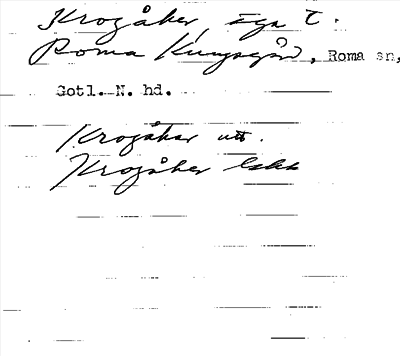 Krogåker, äga t.
Roma Kungsgård, Roma sn,
Gotl. N. hd.
Krogåkar utt.
Krogåker Cskk